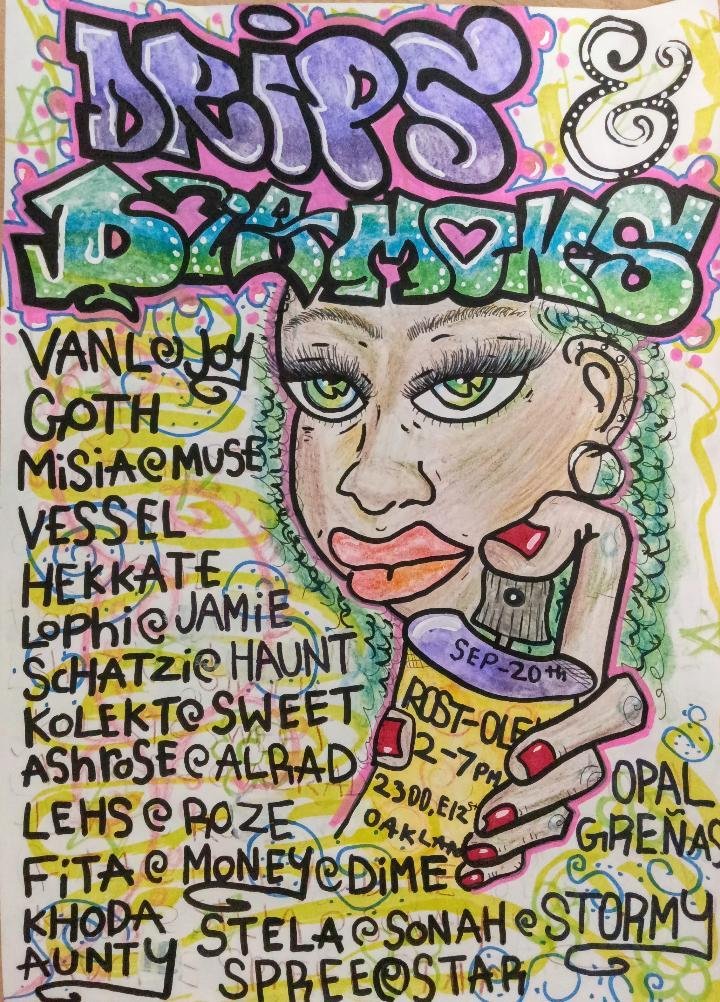 DRIPS &
DIAMONS
VANL@JOY
GOTH
MiSiA@MUSE
VESSEL
HEKKATE
Lophi@JAMiE
SCHATZi@HAUNT
KOLEKT@SWEET
AShroSE@ALRAD
LEHS@ROZE
FiTA@MONEY@DiME
KHODA
AUNTY
STELA@SONAH@STORMY
SPREE@STAR
SEP-20th
RUST-OLE
2-7PM
2300.E12st
OAKLAN
OPAL
GREÑAS